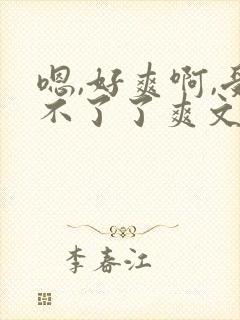 嗯,好爽啊,受
不了了爽文
李春江